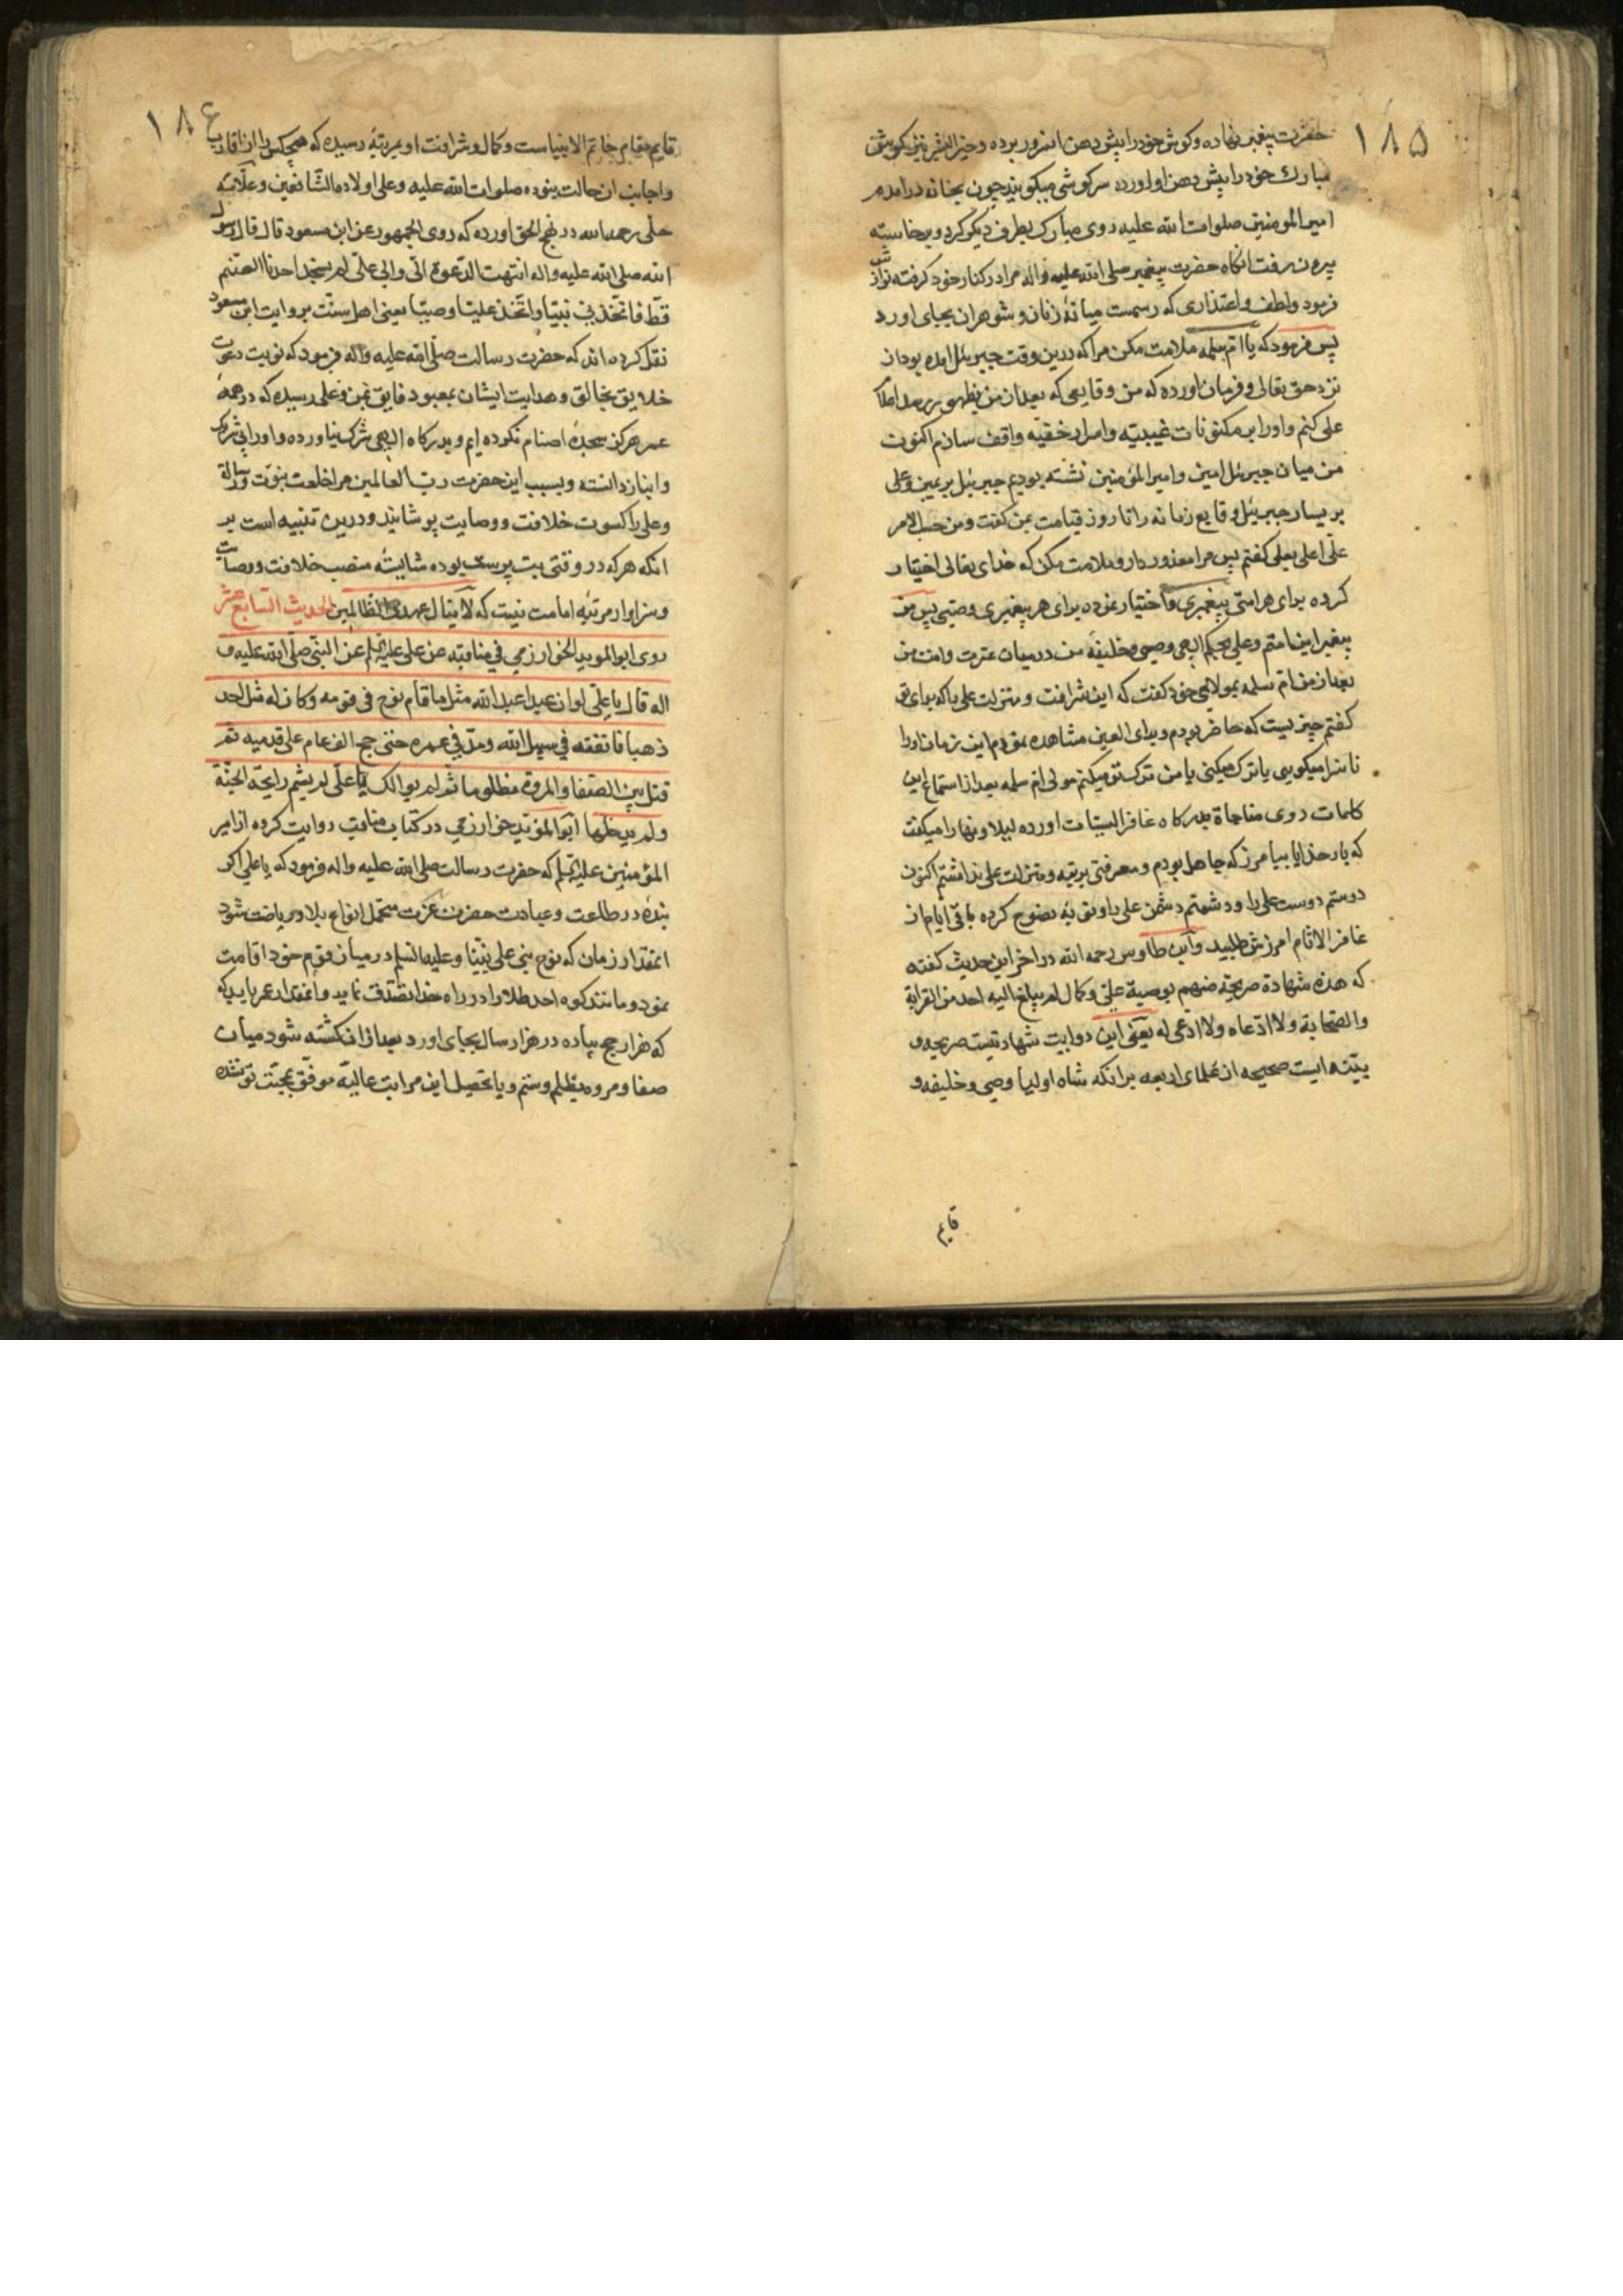 ۱۸۵
حضرت پیغمبر نهاده و کوش خود را پیش دهن انسرور برده و خیر البشر نیز کوش
مبارک خود را پیش دهن او اورده سرکوشی میکویند چون بخانه درامدم
امیر المومنین صلوات الله علیه روی مبارک بطرف دیکر کرد و برخاسته
بیرون رفت انکاه حضرت پیغمبر صلی الله علیه واله مرا در کنار خود کرفته نوازش
فرمود و لطف و اعتذاری که رسمست میانهٔ زنان و شوهران بجای اورد
پس فرمود که یا ام سلمه ملامت مکن مرا که درین وقت جبرئیل امده بود از
نزد حق تعالی و فرمان اورده که من وقایعی که بعد از من بظهور رسد املا
علی کنم و او را بر مکنونات غیبیّه و اسرار خفیّه واقف سازم اکنون
من میان جبرئیل امین و امیر المؤمنین نشسته بودیم جبرئیل بر یمین و علی
بر یسار جبرئیل وقایع زمانه را تا روز قیامت بمن کفت و من حسب الامر
علّی اعلی بعلی کفتم پس مرا معذور دار و ملامت مکن که خدای تعالی اختیار
کرده برای هر امتی پیغمبری و اختیار نموده برای هر پیغمبری وصیّی پس من
پیغمبر این امتم و علی بحکم الهی وصی و خلیفهٔ من در میان عترت و امت من
بعد از من ام سلمه بمولای خود کفت که این شرافت و منزلت علی را که برای تو
کفتم چیزیست که حاضر بودم و برای العین مشاهده نمودم این زمان او را
ناسزا میکویی یا ترک میکنی یا من ترک تو میکنم مولی ام سلمه بعد از استماع این
کلمات روی مناجاة بدرکاه غافر السیئات اورده لیلا و نهارا میکفت
که بار خدایا بیامرز که جاهل بودم و معرفتی برتبه و منزلت علی نداشتم اکنون
دوستم دوست علی را و دشمنم دشمن علی را و توبهٔ نصوح کرده باقی ایام از
غافر الاثام امرزش طلبید و ابن طاوس رحمه الله در اخر این حدیث کفته
که هذه شهادة صریحة منهم بوصیة علیّ و کمال لم یبلغ الیه احد من القرابة
والصّحابة ولا ادّعاه ولا ادعی له یعنی این روایت شهادتیست صریحه و
بیّنه ایست صحیحه از علمای اربعه برانکه شاه اولیا وصی و خلیفه و
قایم
۱۸۶
قایم مقام خاتم الانبیاست و کمال و شرافت او بمرتبهٔ رسیده که هیچکس را از اقارب
و اجانب ان حالت نبوده صلوات الله علیه و علی اولاده الشّافعین و علّامهٔ
حلّی رحمه الله در نهج الحق اورده که روی الجمهور عن ابن مسعود قال قال رسول
الله صلی الله علیه واله انتهت الدّعوة الیّ والی علیّ لم یسجد احدنا لصنم
قطّ فاتّخذنی نبیّا واتّخذ علیّا وصیّا یعنی اهل سنّت بروایت ابن مسعود
نقل کرده اند که حضرت رسالت صلّی الله علیه واله فرمود که نوبت دعوت
خلایق بخالق و هدایت ایشان بمعبود فایق بمن و علی رسیده که در همهٔ
عمر هرکز سجدهٔ اصنام نکرده ایم و بدرکاه الهی شرک نیاورده و او را بی شریک
و انباز دانسته و بسبب این حضرت ربّ العالمین مرا خلعت نبوّت و رسالة
و علی را کسوت خلافت و وصایت پوشانید و درین تنبیه است بر
انکه هر که در وقتی بت پرست بوده شایستهٔ منصب خلافت و وصایت
و سزاوار مرتبهٔ امامت نیست که لا ینال عهدی الظالمین الحدیث السّابع عشر
روی ابو الموید الخوارزمی فی مناقبه عن علی علیه السّلم عن النبّی صلّی الله علیه و
اله قال یا علّی لو ان عبدا عبد الله مثل ما قام نوح فی قومه وکان له مثل احد
ذهبا فانفقه فی سبیل الله ومدّ فی عمره حتی حج الف عام علی قدمیه ثم
قتل بین الصّفا والمروة مظلوما ثم لم یوالک یا علّی لم یشم رایحة الجنّة
ولم یدخلها ابو المؤیّد خوارزمی در کتاب مناقب روایت کرده از امیر
المؤمنین علیه السّلم که حضرت رسالت صلی الله علیه واله فرمود که یا علی اکر
بندهٔ در طاعت و عبادت حضرت عزت متحمل انواع بلا و ریاضت شود
انمقدار زمان که نوح نبی علی نبیّنا وعلیه السّلم در میان قوم خود اقامت
نمود و مانند کوه احد طلا را در راه خدا تصّدق نماید و انمقدار عمر یابد که
که هزار حج پیاده در هزار سال بجای اورد بعد از ان کشته شود میان
صفا و مروه بظلم و ستم و با تحصیل این مراتب عالیّه موفّق بمحبّت تو نشده